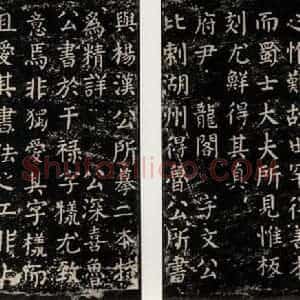 惟難故世字行
而蜀士大夫所見惟板
刻尤鮮得其
府尹 龍閣 宇文公
比刺湖州得魯公所書
與楊漢公所摹二本
爲精詳 公深喜魯
公書於干祿字樣尤致
意焉非獨愛其字樣而
且愛其書法之工非止
Shufaziliao.com